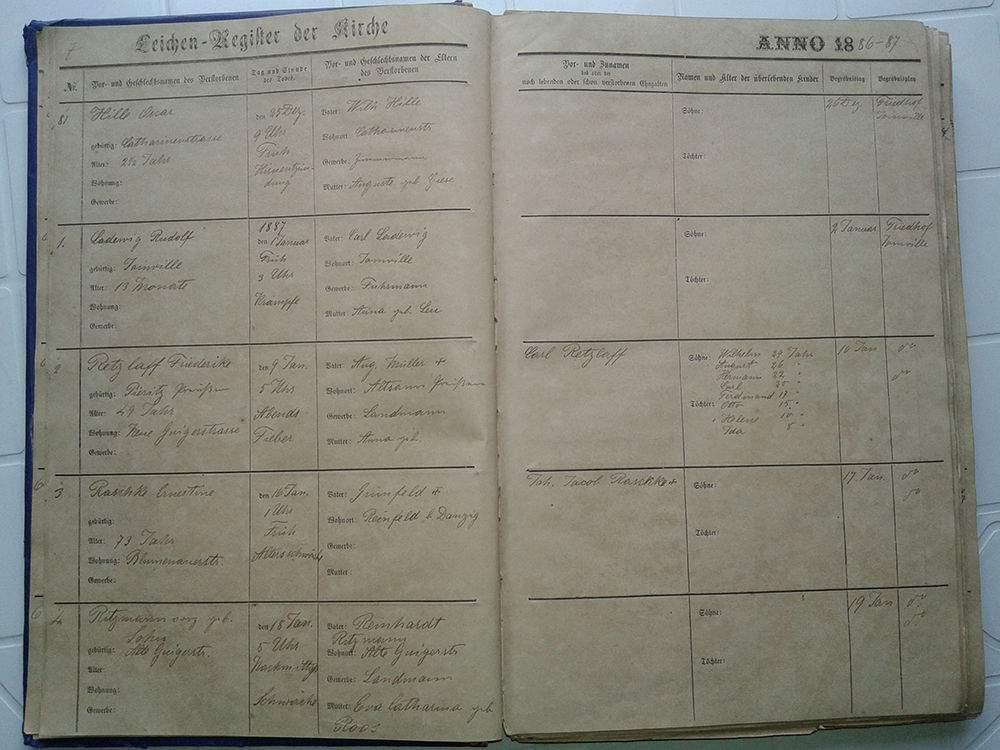 Leichen-Register der Kirche
ANNO 1886-87
Nr. Vor- und Geschlechtsnamen des Verstorbenen Tag und Stunde des Todes. Vor- und Geschlechtsnamen der Eltern des Verstorbenen
Vor- und Zunamen des oder der noch lebenden oder schon verstorbenen Ehegatten Namen und Alter der überlebenden Kinder Begräbnißtag Begräbnißplatz
81 Hille Oscar den 25 Dez. Vater: Wilh Hille Söhne: 26 Dez Friedhof
gebürtig: Catharinenstrasse 9 Uhr Wohnort: Catharinenstr Joinville
Alter: 2½ Jahr Früh Gewerbe: Zimmermann Töchter:
Wohnung: Hirnentzün-
dung Mutter: Auguste geb. Giese
Gewerbe:
1887
1. Ladewig Rudolf den 1 Januar Vater: Carl Ladewig Söhne: 2 Januar Friedhof
gebürtig: Joinville Früh Wohnort: Joinville Joinville
Alter: 13 Monate 3 Uhr Gewerbe: Fuhrmann Töchter:
Wohnung: Krämpfe Mutter: Anna geb.
Gewerbe:
2 Retzlaff Friederike den 9 Jan. Vater: Aug. Müller + Carl Retzlaff Söhne: Wilhelm 29 Jahr 10 Jan do
gebürtig: Pieritz Preußen 5 Uhr Wohnort: Preußen August 26 " do
Alter: 49 Jahr Abends Gewerbe: Landmann Hermann 22 "
Wohnung: Neue Guigerstrasse Fieber Mutter: Anna geb. Carl 20 "
Gewerbe: Ferdinand 17 "
Töchter: Otto 15 "
" Helene 10 "
Ida 8 "
3 Raschke Ernestine den 16 Jan. Vater: Grünfeld + Joh. Jacob Raschke + Söhne: 17 Jan. do
gebürtig: 1 Uhr Wohnort: Reinfeld b. Danzig do
Alter: 73 Jahr Früh Gewerbe: Töchter:
Wohnung: Blumenauerstr. Altersschwäche Mutter:
Gewerbe:
4 Ritzmann geb. den 18 Jan. Vater: Reinhardt Söhne: 19 Jan do
Ritzmann do
gebürtig: Alte Guigerstr. 5 Uhr Wohnort: Alte Guigerstr
Alter: Nachmittgs Gewerbe: Landmann Töchter:
Wohnung:
Gewerbe: Schwäche Mutter: Eva Catharina geb.
Roos